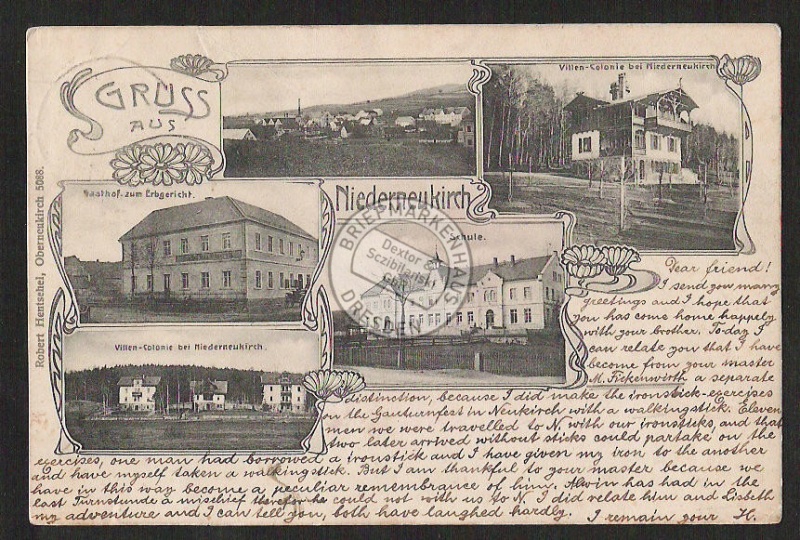 GRUSS
AUS
Villen-Colonie bei Niederneukirch
Gasthof zum Erbgericht.
Niederneukirch
Schule.
Villen-Colonie bei Niederneukirch.
Robert Hentschel, Oberneukirch 5088.
BRIEFMARKENHAUS
Dextor &
GbR
DRESDEN
Dear friend!
I send you many
greetings and I hope that
you has come home happely
with your brother. To-day I
can relate you that I have
become from your master
M. Fickenwirth a separate
distinction, because I did make the ironstick-exercises
on the Gauturnfest in Neukirch with a walkingstick. Eleven
men we were travelled to N. with our ironsticks, and that
two later arrived without sticks could partake on the
exercises, one man had borrowed a ironstick and I have given my iron to the another
and have myself taken a walkingstick. But I am thankful to your master because we
have in this way become a peculiar remembrance of him. Alwin has had in the
last Turnstunde a mischief therefor he could not with us to N. I did relate him and Lisbeth
my adventure and I can tell you, both have laughed hardly. I remain your H.